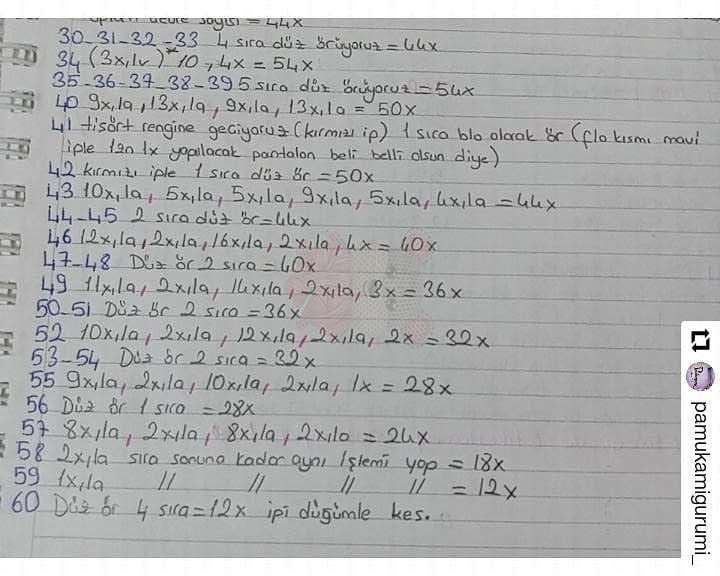 sayısı = 44x
30-31-32-33 4 sıra düz örüyoruz = 44x
34 (3x,1v)*10, 4x = 54x
35-36-37-38-39 5 sıra düz örüyoruz = 54x
40 9x,1a, 13x,1a, 9x,1a, 13x,1a = 50x
41 tişört rengine geçiyoruz (kırmızı ip) 1 sıra blo olarak ör (flo kısmı mavi
iple 1zn 1x yapılacak pantalon beli belli olsun diye)
42 kırmızı iple 1 sıra düz ör = 50x
43 10x,1a, 5x,1a, 5x,1a, 9x,1a, 5x,1a, 4x,1a = 44x
44-45 2 sıra düz ör = 44x
46 12x,1a, 2x,1a, 16x,1a, 2x,1a, 4x = 40x
47-48 Düz ör 2 sıra = 40x
49 11x,1a, 2x,1a, 14x,1a, 2x,1a, 3x = 36x
50-51 Düz ör 2 sıra = 36x
52 10x,1a, 2x,1a, 12x,1a, 2x,1a, 2x = 32x
53-54 Düz ör 2 sıra = 32x
55 9x,1a, 2x,1a, 10x,1a, 2x,1a, 1x = 28x
56 Düz ör 1 sıra = 28x
57 8x,1a, 2x,1a, 8x,1a, 2x,1a = 24x
58 2x,1a sıra sonuna kadar aynı işlemi yap = 18x
59 1x,1a // // // // = 12x
60 Düz ör 4 sıra = 12x ipi düğümle kes.
pamukamigurumi_